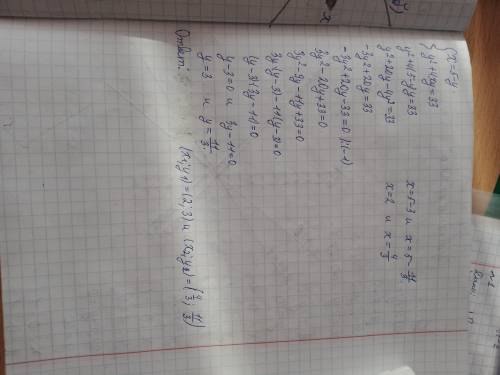 {x=5-y
{y²+4xy=33
y²+4(5-y)y=33
y²+20y-4y²=33
-3y²+20y=33
-3y²+20y-33=0 |·(-1)
3y²-20y+33=0
3y²-9y-11y+33=0
3y(y-3)-11(y-3)=0
(y-3)(3y-11)=0
y-3=0 и 3y-11=0
y=3 и y=11/3
x=5-3 и x=5-11/3
x=2 и x=4/3
Ответ: (x₁;y₁)=(2;3) и (x₂;y₂)=(4/3;11/3)
x